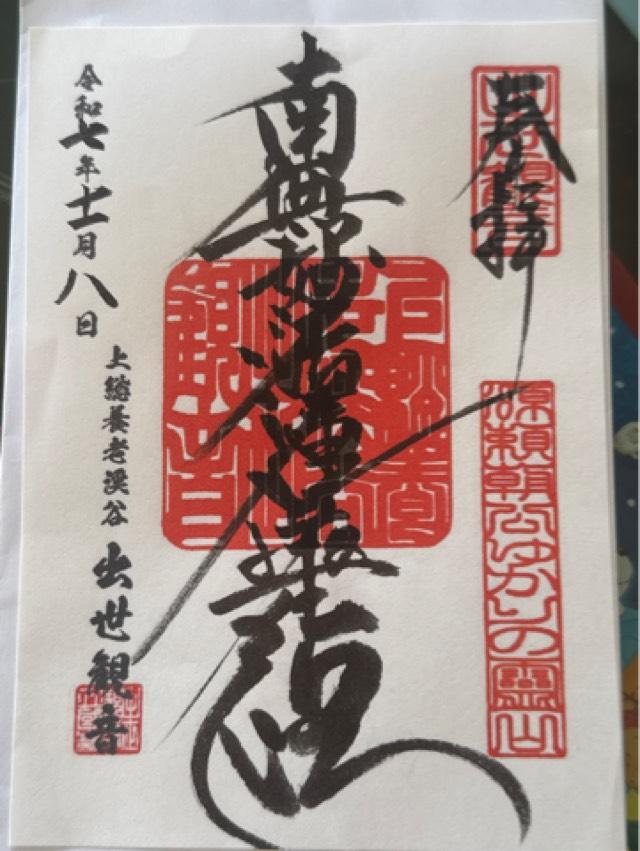 奉拝
源頼朝公ゆかりの霊山
南無妙法蓮華経
上総養老渓谷 出世観音
令和七年十一月八日